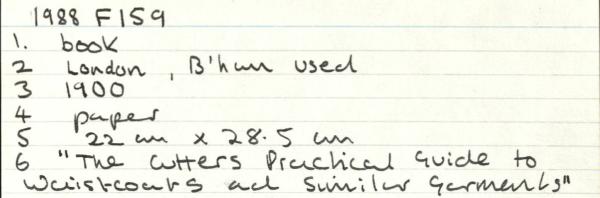 1988 F159
1. book
2 London, B'ham used
3 1900
4 paper
5 22 cm x 28.5 cm
6 "The Cutters Practical Guide to
Waistcoats ad Similar Garments"